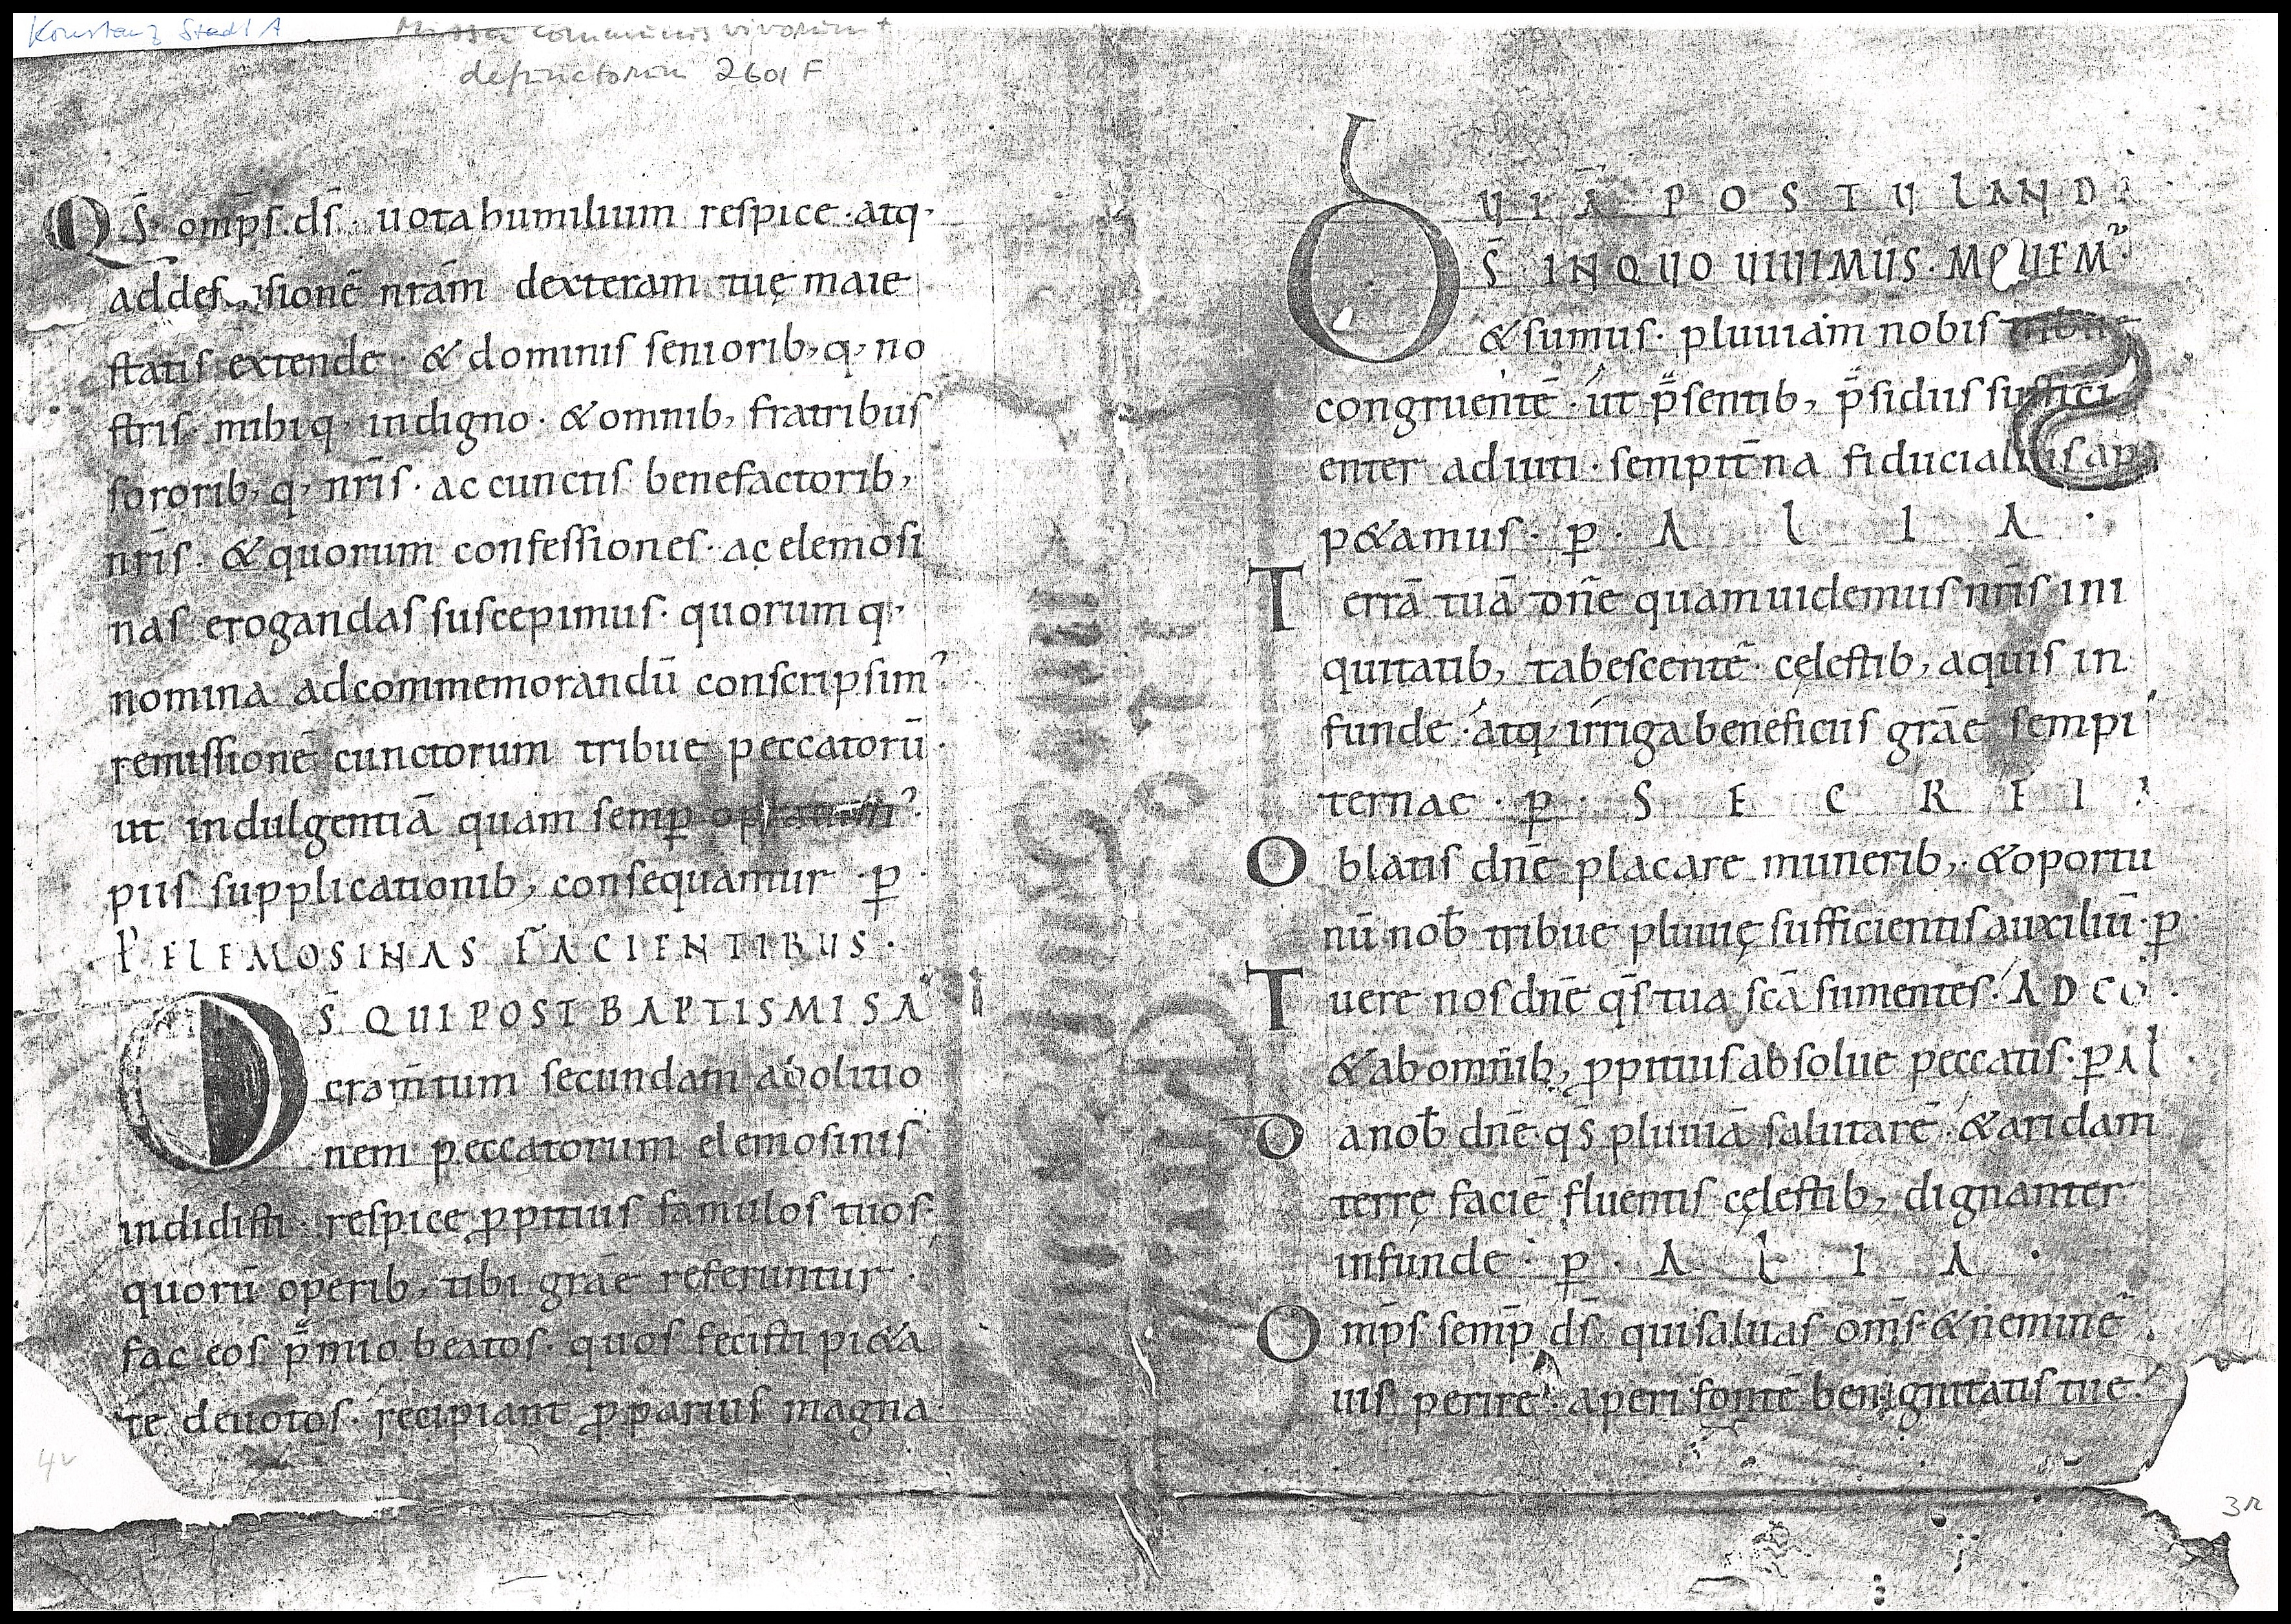 Konstanz StadtA
Missa communis vivorum +
defunctorum 2601 F
Q S̄ · omp̄s · d̄s · uota humilium respice · atq·
ad def sionē nrām dexteram tuę maie
statis extende · & dominis seniorib; q; no
stris · mihi q; indigno · & omnib; fratribus
sororib; q; nrīs · ac cunctis benefactorib;
nrīs · & quorum confessiones · ac elemosi
nas erogandas suscepimus · quorum q;
nomina ad commemorandū conscripsim᾽
remissionē cunctorum tribue peccatorū ·
ut indulgentiā quam semꝑ
piis supplicationib; consequamur · ꝑ ·
P̄ ELEMOSINAS FACIENTIBUS ·
D S̄ QUI POST BAPTISMI SA
cram̄tum secundam abolitio
nem peccatorum elemosinis
indidisti · respice ꝓpitius famulos tuos ·
quorū operib; tibi grāe referuntur ·
fac eos p̄mio beatos · quos fecisti pi&a
te deuotos · recipiant ꝓ paruis magna ·
4v
AD PLUUIĀ POSTULAND
D S̄ IN QUO UIUIMUS · M UEM᾽
& sumus · pluuiam nobis tribue
congruentē · ut p̄sentib; p̄sidiis suffici
enter adiuti · sempit̄na fiducialius ap
p&amus · ꝑ · A L I A ·
T errā tuā dn̄e quam uidemus nrīs ini
quitatib; tabescentē · cęlestib; aquis in
funde · atq; irriga beneficiis grāe sempi
ternae · ꝑ · S E C R E T
O blatis dn̄e placare munerib; · & oportu
nū nob̄ tribue pluuię sufficientis auxiliū · ꝑ ·
T uere nos dn̄e q̄s tua scā sumentes · AD CŌ ·
& ab omnib; ꝓpitius absolue peccatis · ꝑ AL ·
D a nob̄ dn̄e · q̄s pluuiā salutarē · & aridam
terrę faciē fluentis cęlestib; dignanter
infunde · ꝑ · A L I A ·
O mp̄s semp̄ d̄s · qui saluas om̄s · & neminē
uis perire · aperi fontē benignitatis tuę ·
3r